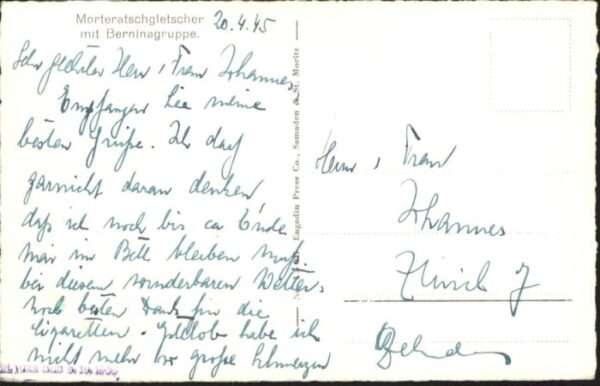 Morteratschgletscher
mit Berninagruppe.
20.4.45
Sehr geehrter Herr, Frau Johannes,
Empfangen Sie meine
besten Grüße. Ich darf
garnicht daran denken,
daß ich noch bis ca Ende
Mai im Bett bleiben muß.
bei diesem wunderbaren Wetter.
noch besten Dank für die
Cigaretten. Gottlob habe ich
nicht mehr so große Schmerzen
Engadin Press Co., Samaden & St. Moritz
Herrn, Frau
Johannes
Zürich 7